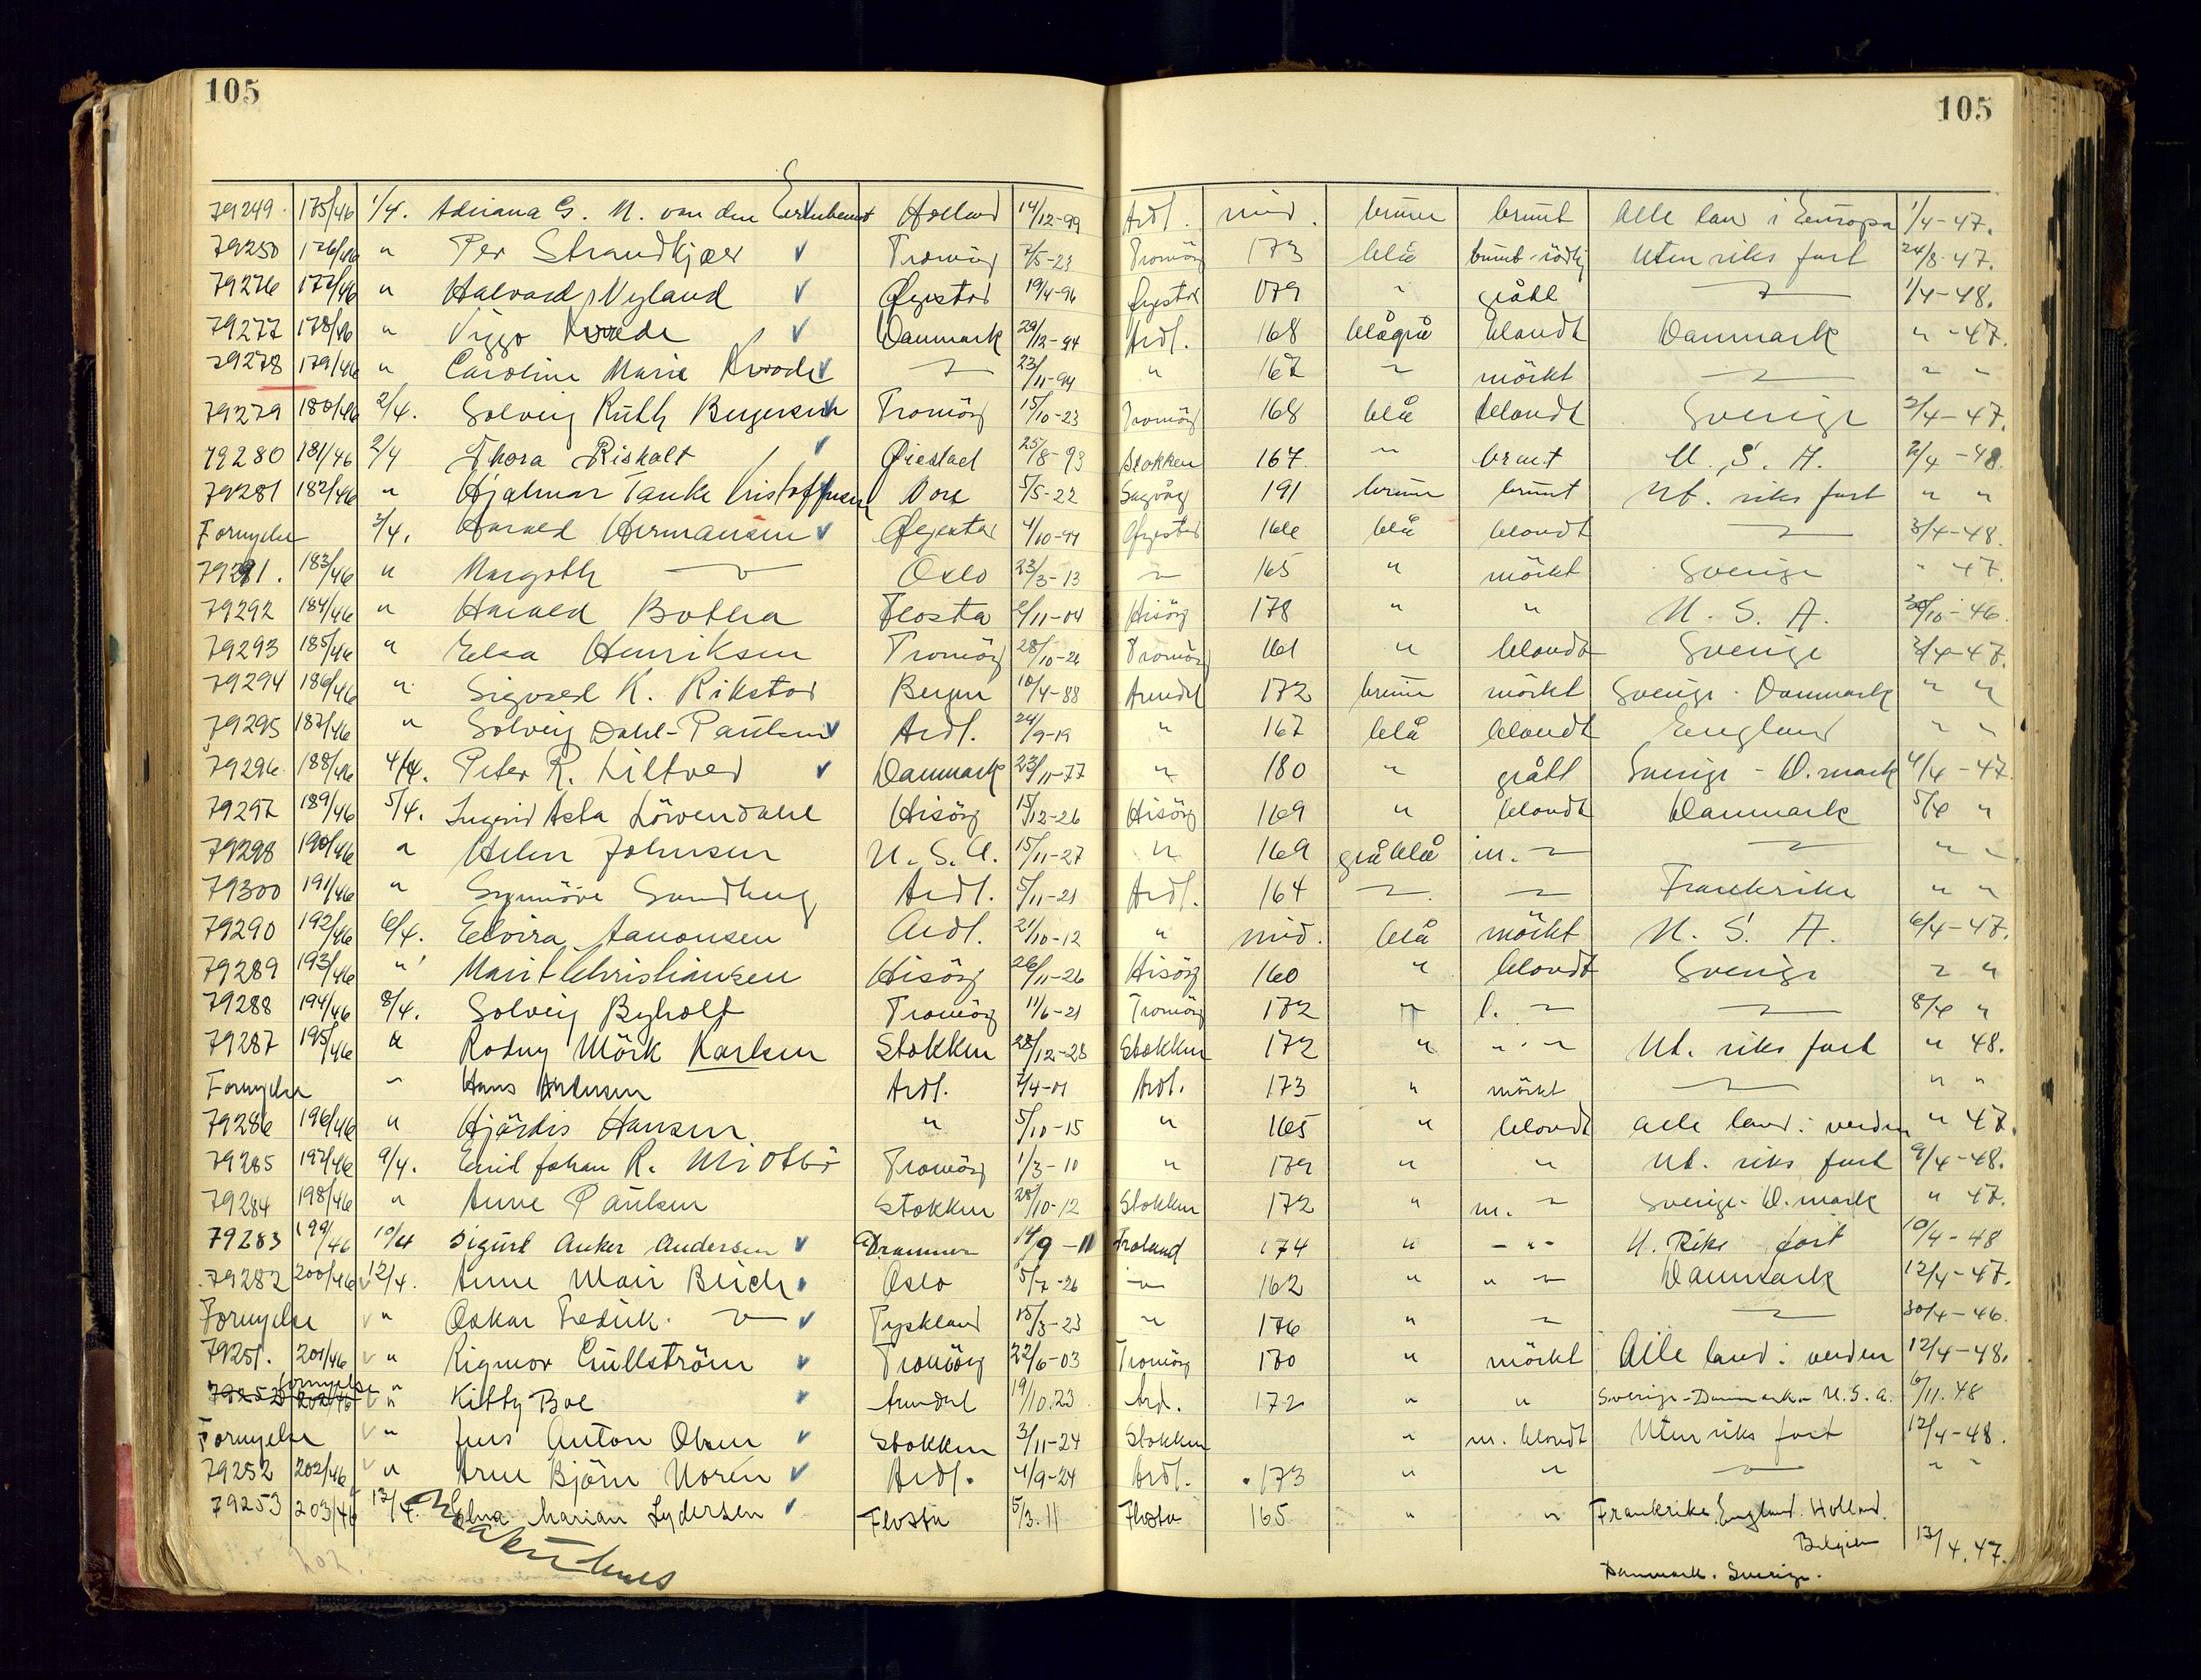 105 105
79249 175/46 1/4. Adriana G. M. van den Holland 14/12-99 Ardl. mid. brune brunt Alle land i Europa 1/4-47.
79250 176/46 " Per Strandkjær Tromöy 7/5-23 Tromöy 173 blå brunt-rödlig Utenriks fart 24/8-47.
79276 177/46 " Halvard Nyland Øyestad 19/4-96 Øyestad 179 " grått " 1/4-48.
79277 178/46 " Viggo Danmark 29/12-94 Ardl. 168 blågrå blondt Danmark " -47.
79278 179/46 " Caroline Marie " 23/11-94 " 167 " mörkt " " "
79279 180/46 2/4. Solveig Ruth Bergersen Tromöy 15/10-23 Tromöy 168 blå blondt Sverige 2/4-47.
79280 181/46 2/4 Thora Riskalt Øiestad 25/8-93 Stokken 167 " brunt U.S.A. 2/4-48
79281 182/46 " Hjalmar Tanke Kristoffersen 5/5-22 191 brune brunt Ut. riks fart " "
Fornyelse 3/4. Harald Hermansen Øyestad 4/10-94 Øyestad 166 blå blondt " 3/4-48.
79291. 183/46 " Margoth " Oslo 23/3-13 " 165 " mörkt Sverige " 47.
79292 184/46 " Harald Botha Flosta 2/11-04 Hisöy 178 " " U.S.A. 30/10-46.
79293 185/46 " Elsa Henriksen Tromöy 28/10-26 Tromöy 161 " blondt Sverige 3/4-47.
79294 186/46 " Sigvard K. Rikstad Bergen 10/4-88 Arendal 172 brune mörkt Sverige - Danmark " "
79295 187/46 " Solveig Dahl-Paulsen Ardl. 24/9-19 " 167 blå blondt England " "
79296 188/46 4/4. Peter R. Liltved Danmark 23/11-77 " 180 " grått Sverige - D.mark 4/4-47.
79297 189/46 5/4. Ingrid Asta Löwendahl Hisöy 15/12-26 Hisöy 169 " blondt Danmark 5/4 "
79298 190/46 " Helen Johnsen U.S.A. 15/11-27 " 169 gråblå m. " " " "
79300 191/46 " Synnöve Sundberg Ardl. 5/11-21 Ardl. 164 " " Frankrike " "
79290 192/46 6/4. Elvira Aanonsen Ardl. 21/10-12 " mid. blå mörkt U.S.A. 6/4-47.
79289 193/46 " Marit Christiansen Hisöy 26/11-26 Hisöy 160 " blondt Sverige " "
79288 194/46 8/4. Solveig Byholt Tromöy 11/6-21 Tromöy 172 " l. " " 8/4 "
79287 195/46 " Rodny Mörk Karlsen Stokken 28/12-28 Stokken 172 " " " Ut. riks fart " 48.
Fornyelse " Hans Ardl. 7/4-01 Ardl. 173 " mörkt " " "
79286 196/46 " Hjördis Hansen " 5/10-15 " 165 " blondt Alle land i verden " 47.
79285 197/46 9/4. Emil Johan R. Tromöy 1/3-10 " 179 " " Ut. riks fart 9/4-48.
79284 198/46 " Anne Paulsen Stokken 28/10-12 Stokken 172 " m. " Sverige - D.mark " 47.
79283 199/46 10/4 Sigurd Anker Andersen Drammen 14/9-11 Froland 174 " " " U. Riks fart 10/4-48
79282 200/46 12/4. Anne Marie Oslo 5/7-26 " 162 " " " Danmark 12/4-47.
Fornyelse " Oskar Fredrik " Tyskland 15/3-23 " 176 " " " 30/4-46.
79251. 201/46 " Rigmor Gullström Tromöy 22/6-03 Tromöy 170 " mörkt Alle land i verden 12/4-48.
79252 202/46 fornyelse " Kitty Boe Arendal 19/10.23 Ard. 172 " " Sverige-Danmark-U.S.A. 6/11.48
Fornyelse " Jens Anton Olsen Stokken 3/11-24 Stokken " m. blondt Utenriks fart 12/4-48.
79252 202/46 " Arne Björn Noren Ardl. 4/9-24 Ardl. 173 " " " " "
79253 203/46 13/4. Marian Lydersen Flosta 5/3.11 Flosta 165 " " Frankrike. England. Holland.
Belgien 13/4.47.
202. Danmark. Sverige.